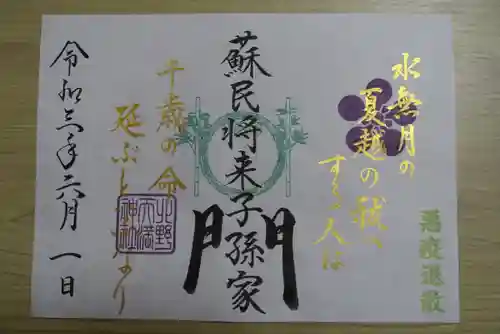 水無月の
夏越の祓へ
する人は
悪疫退散
蘇民将来子孫家
門
千歳の命
延ぶといふなり
北野
天満
神社
令和三年六月一日